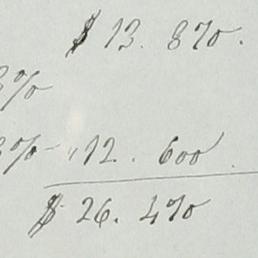 $ 13. 870.
%
% " 12. 600
$ 26. 470